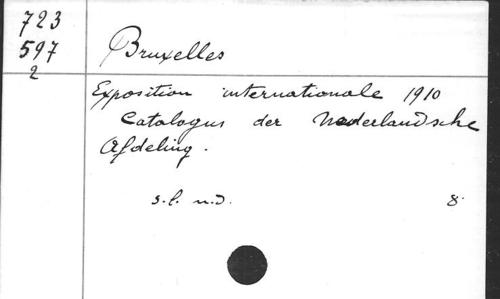 723
597
2
Bruxelles
Exposition internationale 1910
Catalogus der Nederlandsche
Afdeling.
s.l. n.d. 8